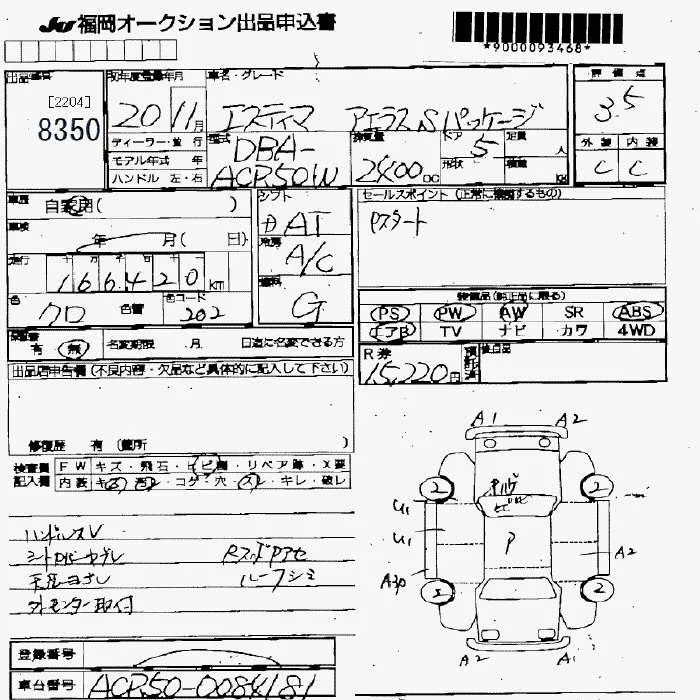 JU 福岡オークション出品申込書
*9000093468*
出品番号
[2204]
8350
初年度登録年月
20 11月
ディーラー・並行
モデル年式 年
ハンドル 左・右
車名・グレード
エスティマ アエラス Sパッケージ
型式
DBA-
ACR50W
排気量
2400cc
ドア
5
形状
定員
人
積載
kg
評価点
3.5
外装 内装
C C
車歴
自家用( )
車検
年 月( 日)
走行
166420KM
色
クロ
色替
色コード
202
シフト
AT
冷房
A/C
燃料
G
セールスポイント (正常に稼働するもの)
Pスタート
装備品(純正品に限る)
PS PW AW SR ABS
エアB TV ナビ カワ 4WD
R券
15,220円
預託済
後日品
保証書
有 無
名変期限 月 日迄に名変できる方
出品店申告欄(不良内容・欠品など具体的に記入して下さい)
修復歴 有 (箇所 )
検査員記入欄
FW キズ・飛石・ヒビ・リペア跡・X要
内装 キズ・コゲ・穴・スレ・キレ・破レ
ハンドルスレ
シートカバーヨゴレ
天張ヨゴレ
ルーフシミ
外モニター取付
A1 A2
2 2
U1
U1
P
A2
A30
2
A2 A1
登録番号
車台番号
ACR50-0084181